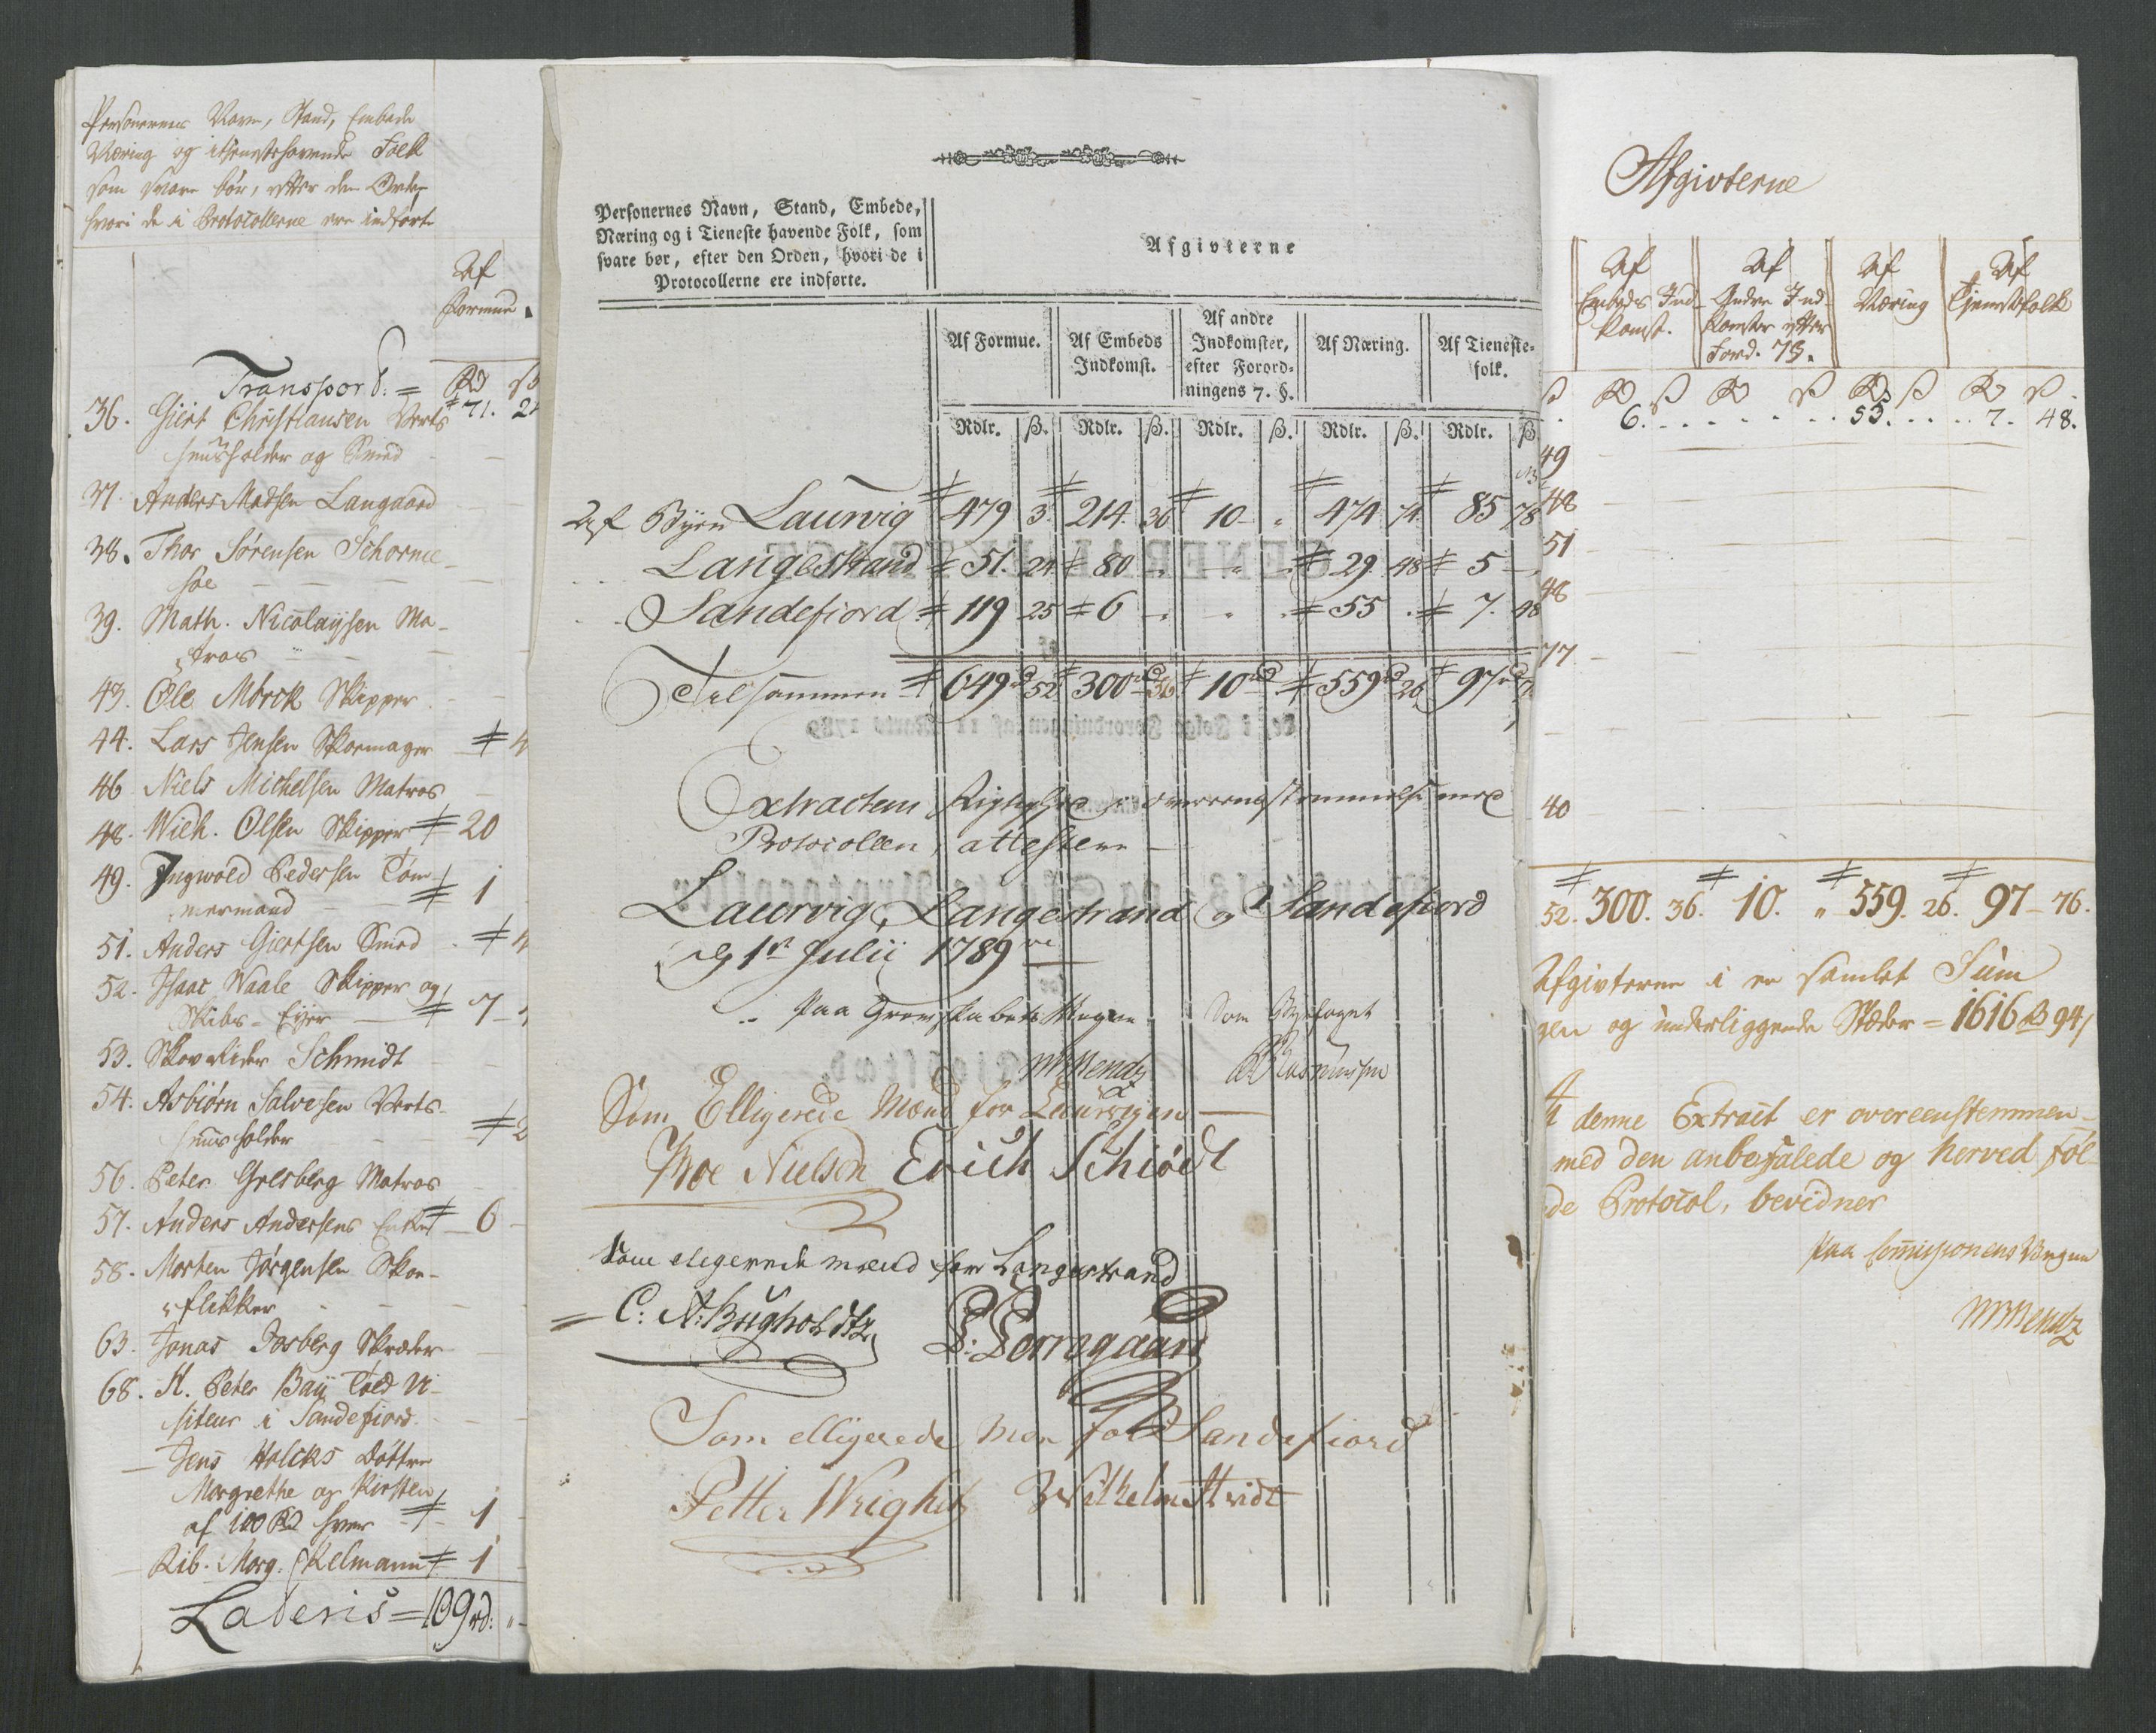 Personernes Navn, Stand, Embede
Næring og itienestehavende Folk
som svare bør, efter den Orden
hvori de i Protocollerne ere indførte
Af
Formue.
Transport: = Rd ß
71. 2
36. Giert Christiansen Verts
huusholder og Smed
37. Anders Madsen Langaard
38. Thor Sørensen Schorme-
søe
39. Math. Nicolaysen Ma-
tros
43. Ole Mørck Skipper
44. Lars Jensen Skomager 4
46 Niels Michelsen Matros
48. Wilh. Olsen Skipper 20
49. Ingwold Pedersen Tøm-
mermand 1
51. Anders Giertsen Smed 4
52. Isaac Waale Skipper og
Skibs-Eyer 7
53. Skovrider Schmidt
54. Asbiørn Salvesen Verts-
huusholder 2
56. Peter Gresberg Matros
57. Anders Andersens Enke 6
58. Morten Jørgensen Skoe-
flikker
63. Jonas Fosberg Skræder
68. H. Peter Baÿ Told Vi-
siteur i Sandefiord
Jens Holcks Døttre
Margrethe og Kirsten
af 100 Rd hver 1
Rib. Marg. Skelmann 1
Lateris = 109 rd:
Personernes Navn, Stand, Embede,
Næring og i Tieneste havende Folk, som
svare bør, efter den Orden, hvori de i
Protocollerne ere indførte.
Afgivterne
Af Formue. Af Embeds Indkomst. Af andre Indkomster, efter Forord-ningens 7. §. Af Næring. Af Tieneste-folk.
Rdlr. ß. Rdlr. ß. Rdlr. ß. Rdlr. ß. Rdlr. ß
Af Byen Laurvig 479 3. 214. 36 10 " 474 74 85 78
Langestrand 51. 24 80 " " " 29. 48 5 "
Sandefiord 119 25 6 " " " 55 . 7. 48
Tilsammen 649 52 300 36 10 559 26 97
Extractens Rigtighed i overeensstemmelse med
Protocollen, attestere
Laurvig, Langestrand og Sandefiord
d 1ste Julii 1789
Paa Grevskabets Vegne Som Byefoget
MMendz Rasmussen
Som Elligerede Mænd for Laurvigen
Moe Nielsen Erich Schiødt
Som elegerede mænd for Langestrand
C: A: Bugholdtz L: Lorngaard
Som elligerede Men for Sandefiord
Petter Wright Wilhelm Hvidt
Afgivterne
Af Embeds Ind-komst. Af Andre Ind-komster efter Ford. 7§. Af Næring Af Tjenestefolk
ß Rd ß Rd ß Rd ß Rd ß
6. 55. 7. 48.
49
48
51
48
77
40
52. 300. 36. 10. " 559. 26. 97 - 76.
Afgivterne i en samlet Sum
gen og underliggende Stæder = 1616 Rd 94
At denne Extract er overeenstemmen-
med den anbefalede og herved føl-
de Protocol, bevidner
Paa Commissionens Vegne
MMendz